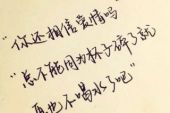 “你还相信爱情吗
“总不能因为杯子碎了就
再也不喝水了吧”